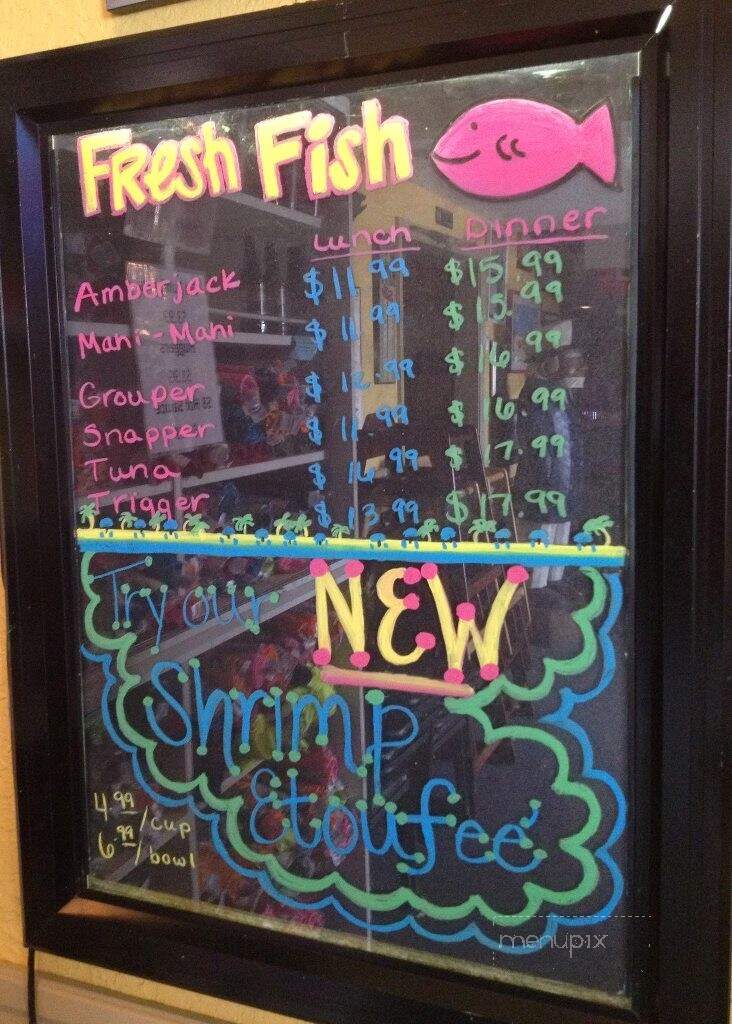 Fresh Fish
Lunch Dinner
Amberjack $11.99 $15.99
Mahi-Mahi $11.99 $15.99
Grouper $12.99 $16.99
Snapper $11.99 $16.99
Tuna $14.99 $17.99
Trigger $13.99 $17.99
Try our NEW
Shrimp
Etoufeé
4.99/cup
6.99/bowl
menupix